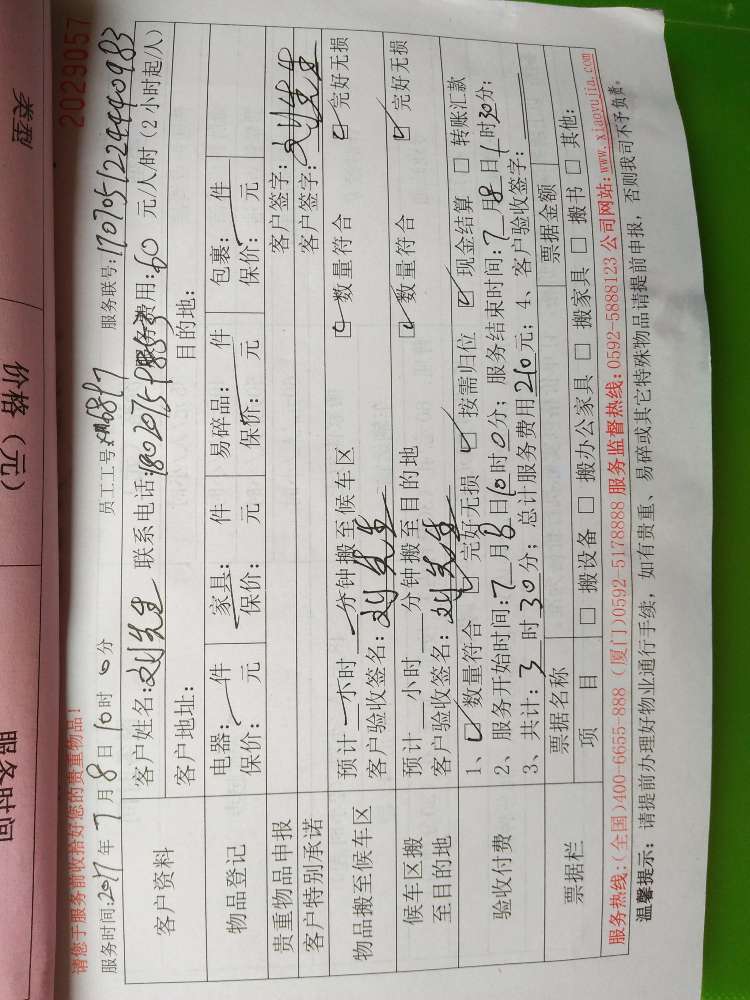 类型
价格（元）
服务时间
2029057
请您于服务前收拾好您的贵重物品！
服务时间:2017年7月8日10时0分 员工工号: 服务联号:1707051224440983
客户资料 客户姓名:刘先生 联系电话: 服务费用:60元/人/时（2小时起/人）
客户地址: 目的地:
物品登记 电器: 件 家具: 件 易碎品: 件 包裹: 件
保价: 元 保价: 元 保价: 元 保价: 元
贵重物品申报 客户签字:刘先生
客户特别承诺 客户签字:
物品搬至候车区 预计 小时 分钟搬至候车区 ☑ 数量符合 ☑ 完好无损
客户验收签名:刘先生
候车区搬至目的地 预计 小时 分钟搬至目的地 ☑ 数量符合 ☑ 完好无损
客户验收签名:刘先生
验收付费 1、☑ 数量符合 ☑ 完好无损 ☑ 按需归位 ☑ 现金结算 □ 转账汇款
2、服务开始时间:7月8日10时0分；服务结束时间:7月8日1时30分；
3、共计:3时30分；总计服务费用210元；4、客户验收签字:
票据栏 票据名称 票据金额
项目 □ 搬设备 □ 搬办公家具 □ 搬家具 □ 搬书 □ 其他:
服务热线:(全国)400-6655-888 (厦门)0592-5178888 服务监督热线:0592-5888123 公司网站:www.xiaoyujia.com
温馨提示：请提前办理好物业通行手续，如有贵重、易碎或其它特殊物品请提前申报，否则我司不予负责。